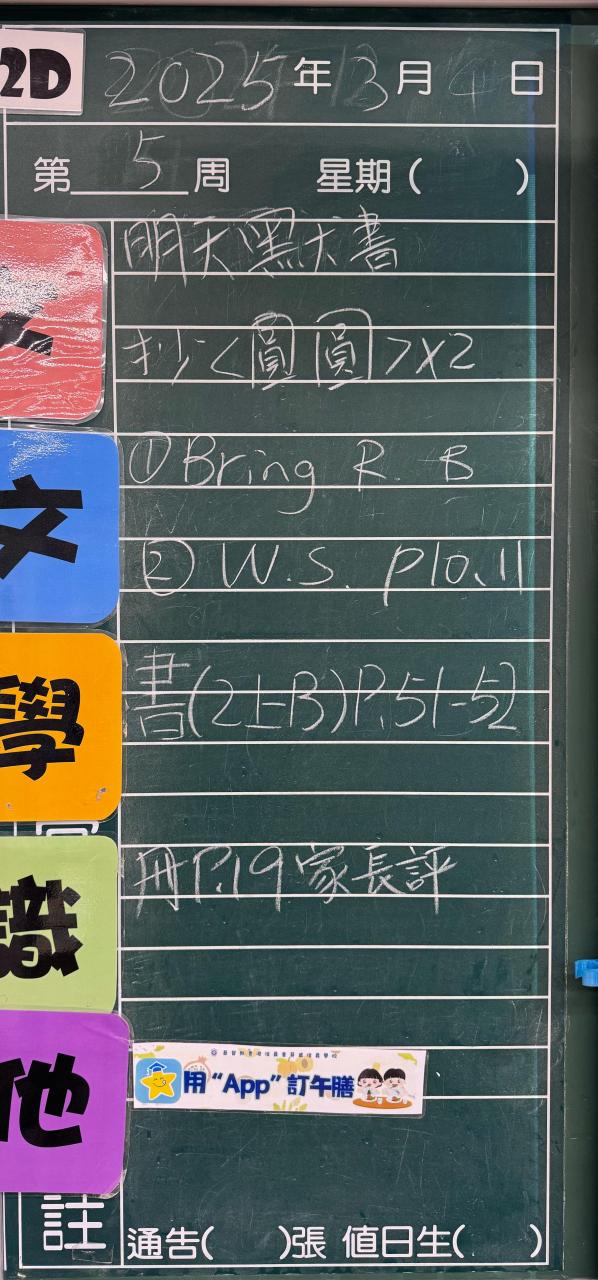 2D 2025年3月4日
第5周 星期( )
明天默天書
抄<圓圓>×2
文
①Bring R. B
②W.S. p10、11
學
書(2上B)P.51-52
識
冊P.19家長評
他
用“App”訂午膳
註
通告( )張 值日生( )